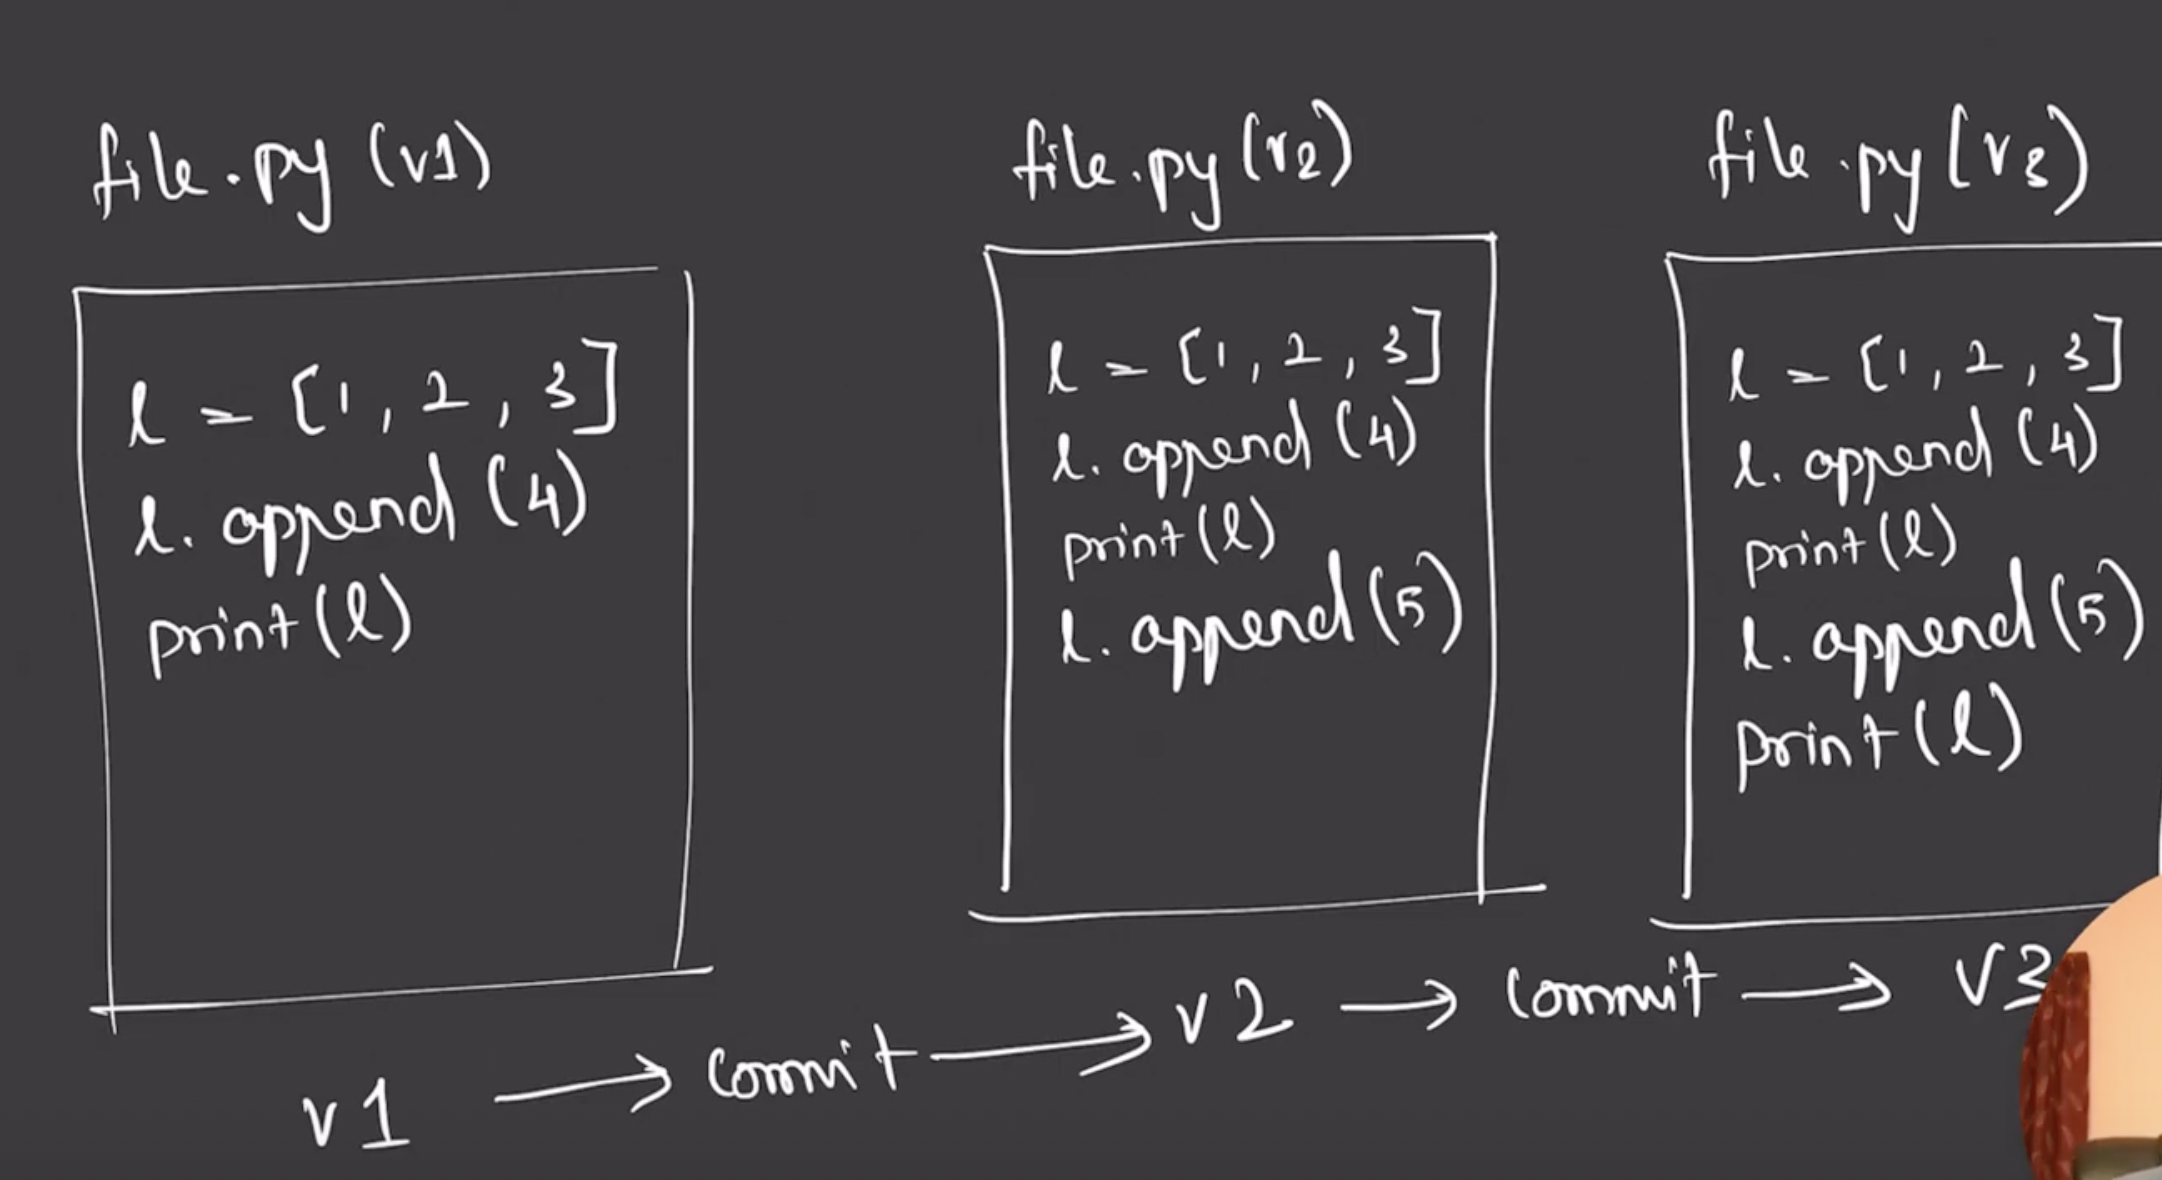 file.py (v1)
l = [1, 2, 3]
l. append (4)
print (l)
file.py (v2)
l = [1, 2, 3]
l. append (4)
print (l)
l. append (5)
file.py (v3)
l = [1, 2, 3]
l. append (4)
print (l)
l. append (5)
print (l)
v1 → commit → v2 → commit → v3